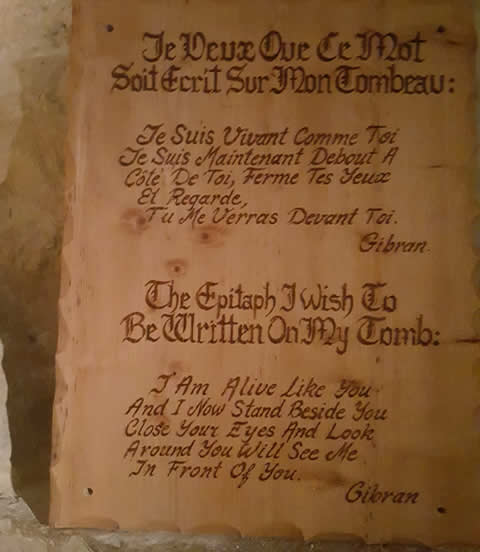 Je Veux Que Ce Mot
Soit Ecrit Sur Mon Tombeau:
Je Suis Vivant Comme Toi
Je Suis Maintenant Debout A
Côté De Toi, Ferme Tes Yeux
Et Regarde,
Tu Me Verras Devant Toi.
Gibran
The Epitaph I Wish To
Be Written On My Tomb:
I Am Alive Like You
And I Now Stand Beside You
Close Your Eyes And Look
Around You Will See Me
In Front Of You.
Gibran